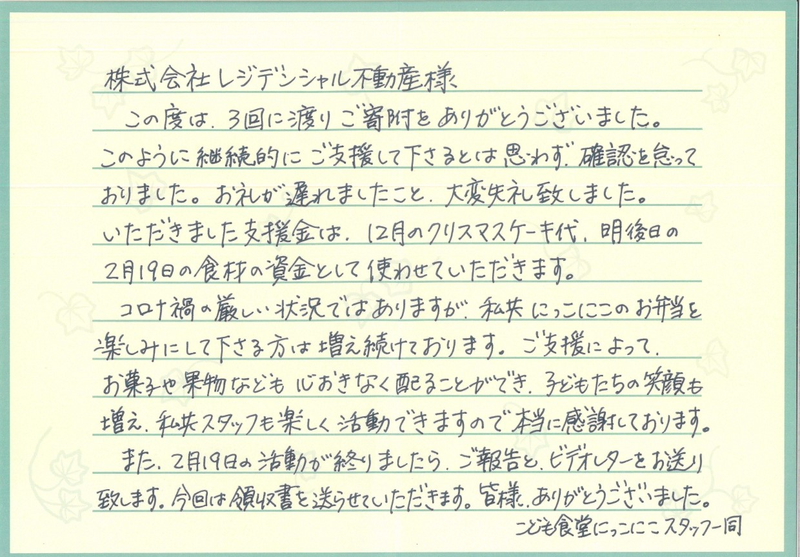 株式会社レジデンシャル不動産様
この度は、3回に渡りご寄附をありがとうございました。
このように継続的にご支援して下さるとは思わず、確認を怠って
おりました。お礼が遅れましたこと、大変失礼致しました。
いただきました支援金は、12月のクリスマスケーキ代、明後日の
2月19日の食材の資金として使わせていただきます。
コロナ禍の厳しい状況ではありますが、私共にっこにこのお弁当を
楽しみにして下さる方は増え続けております。ご支援によって、
お菓子や果物なども心おきなく配ることができ、子どもたちの笑顔も
増え、私共スタッフも楽しく活動できますので本当に感謝しております。
また、2月19日の活動が終りましたら、ご報告と、ビデオレターをお送り
致します。今回は領収書を送らせていただきます。皆様、ありがとうございました。
こども食堂にっこにこスタッフ一同